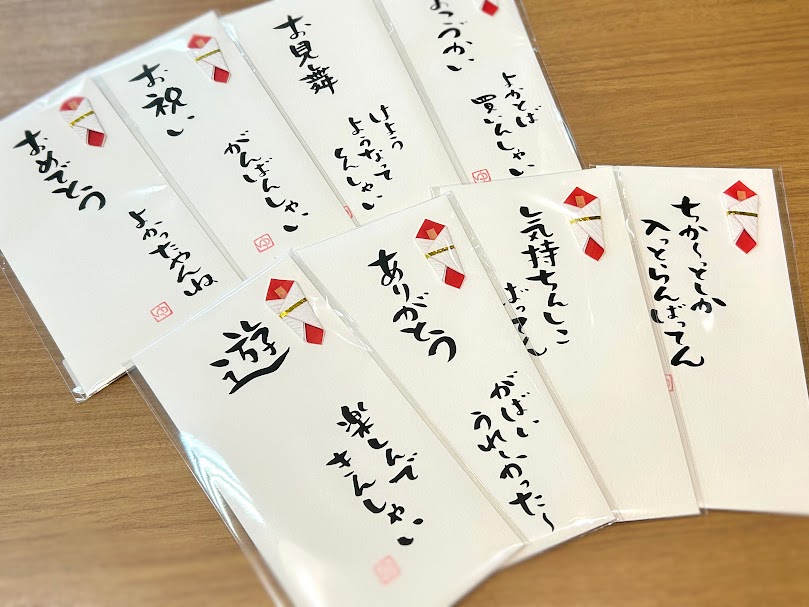 おめでとう
よかったやんね
お祝い
がんばんしゃい
お見舞
はよう
ようなって
くんしゃい
おこづかい
よかとば
買いんしゃい
遊
楽しんで
きんしゃい
ありがとう
がばい
うれしかった〜
気持ちんしこ
ばってん
ちか〜っとしか
入っとらんばってん
ゆ
ゆ